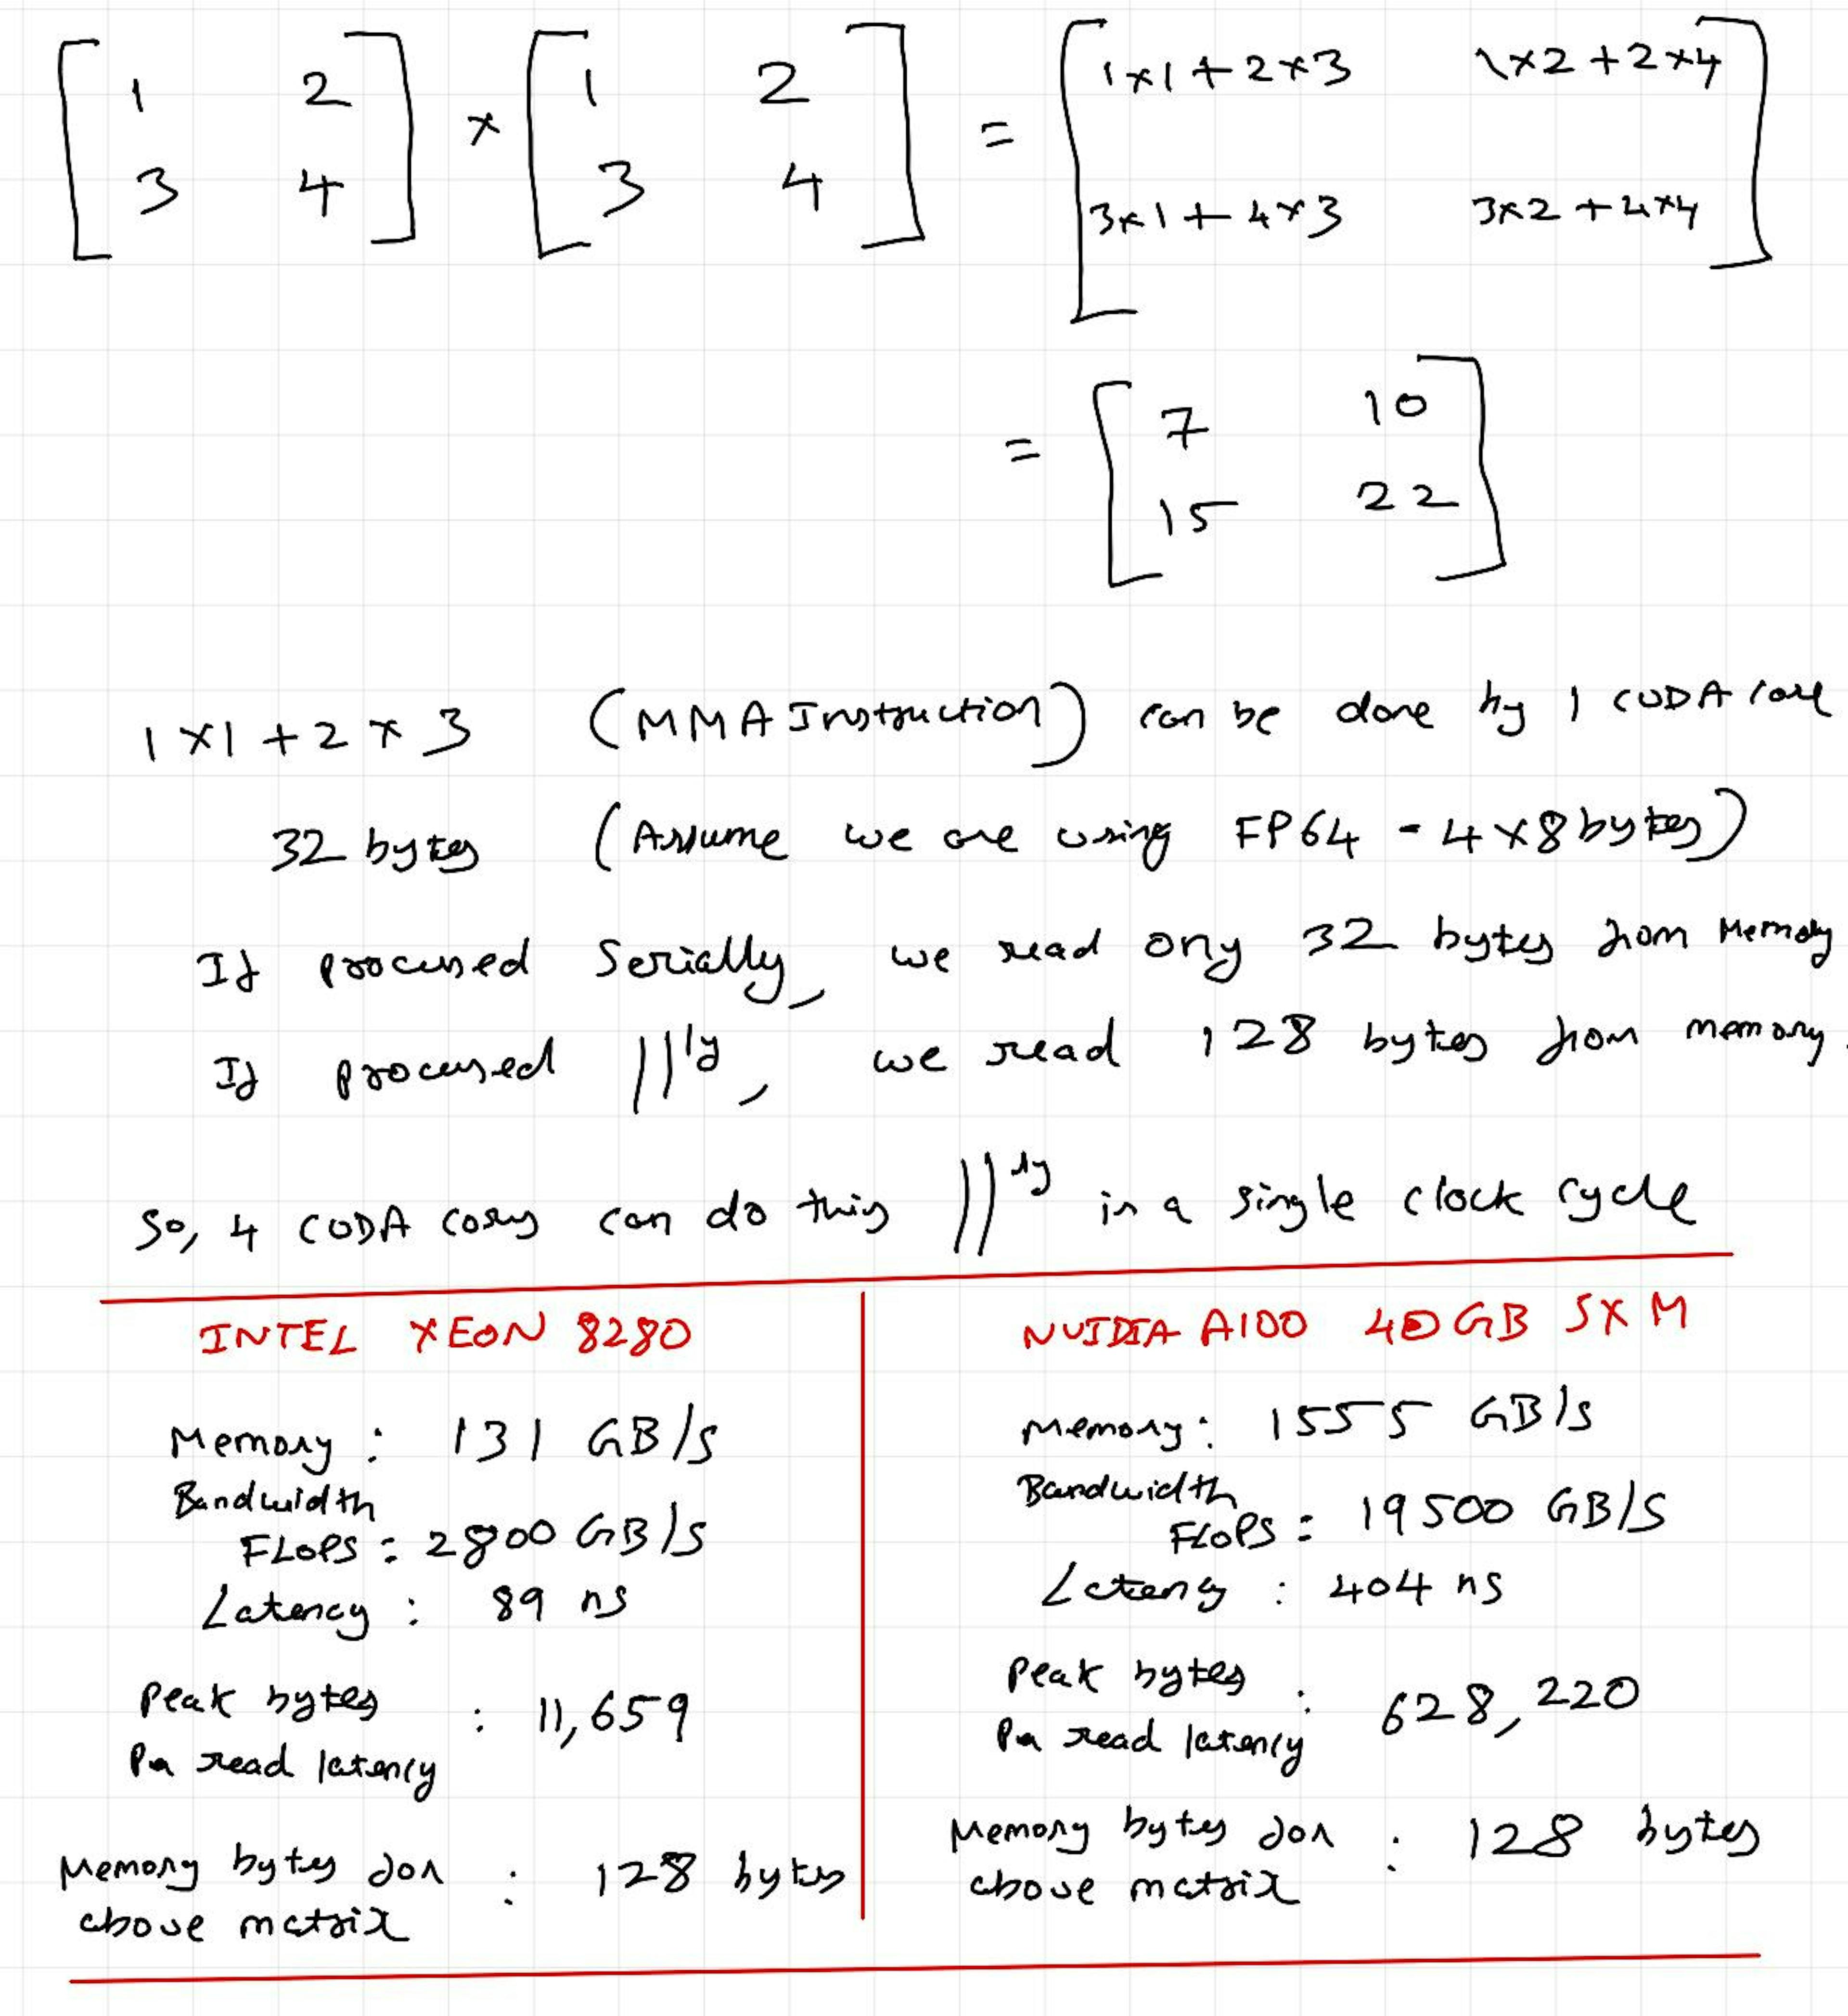 [ 1 2 ] × [ 1 2 ] = [ 1×1+2×3 1×2+2×4 ]
[ 3 4 ] [ 3 4 ] [ 3×1+4×3 3×2+4×4 ]
= [ 7 10 ]
[ 15 22 ]
1×1+2×3 (MMA Instruction) can be done by 1 CUDA core
32 bytes (Assume we are using FP64 - 4×8bytes)
If processed Serially, we read ony 32 bytes from Memory
If processed ||ly, we read 128 bytes from memory.
So, 4 CUDA cores can do this ||ly in a single clock cycle
INTEL XEON 8280
Memory : 131 GB/s
Bandwidth
FLOPS : 2800 GB/s
Latency : 89 ns
Peak bytes : 11,659
Per read latency
Memory bytes for : 128 bytes
above matrix
NVIDIA A100 40GB SXM
Memory : 1555 GB/s
Bandwidth
FLOPS : 19500 GB/s
Latency : 404 ns
Peak bytes : 628,220
Per read latency
Memory bytes for : 128 bytes
above matrix